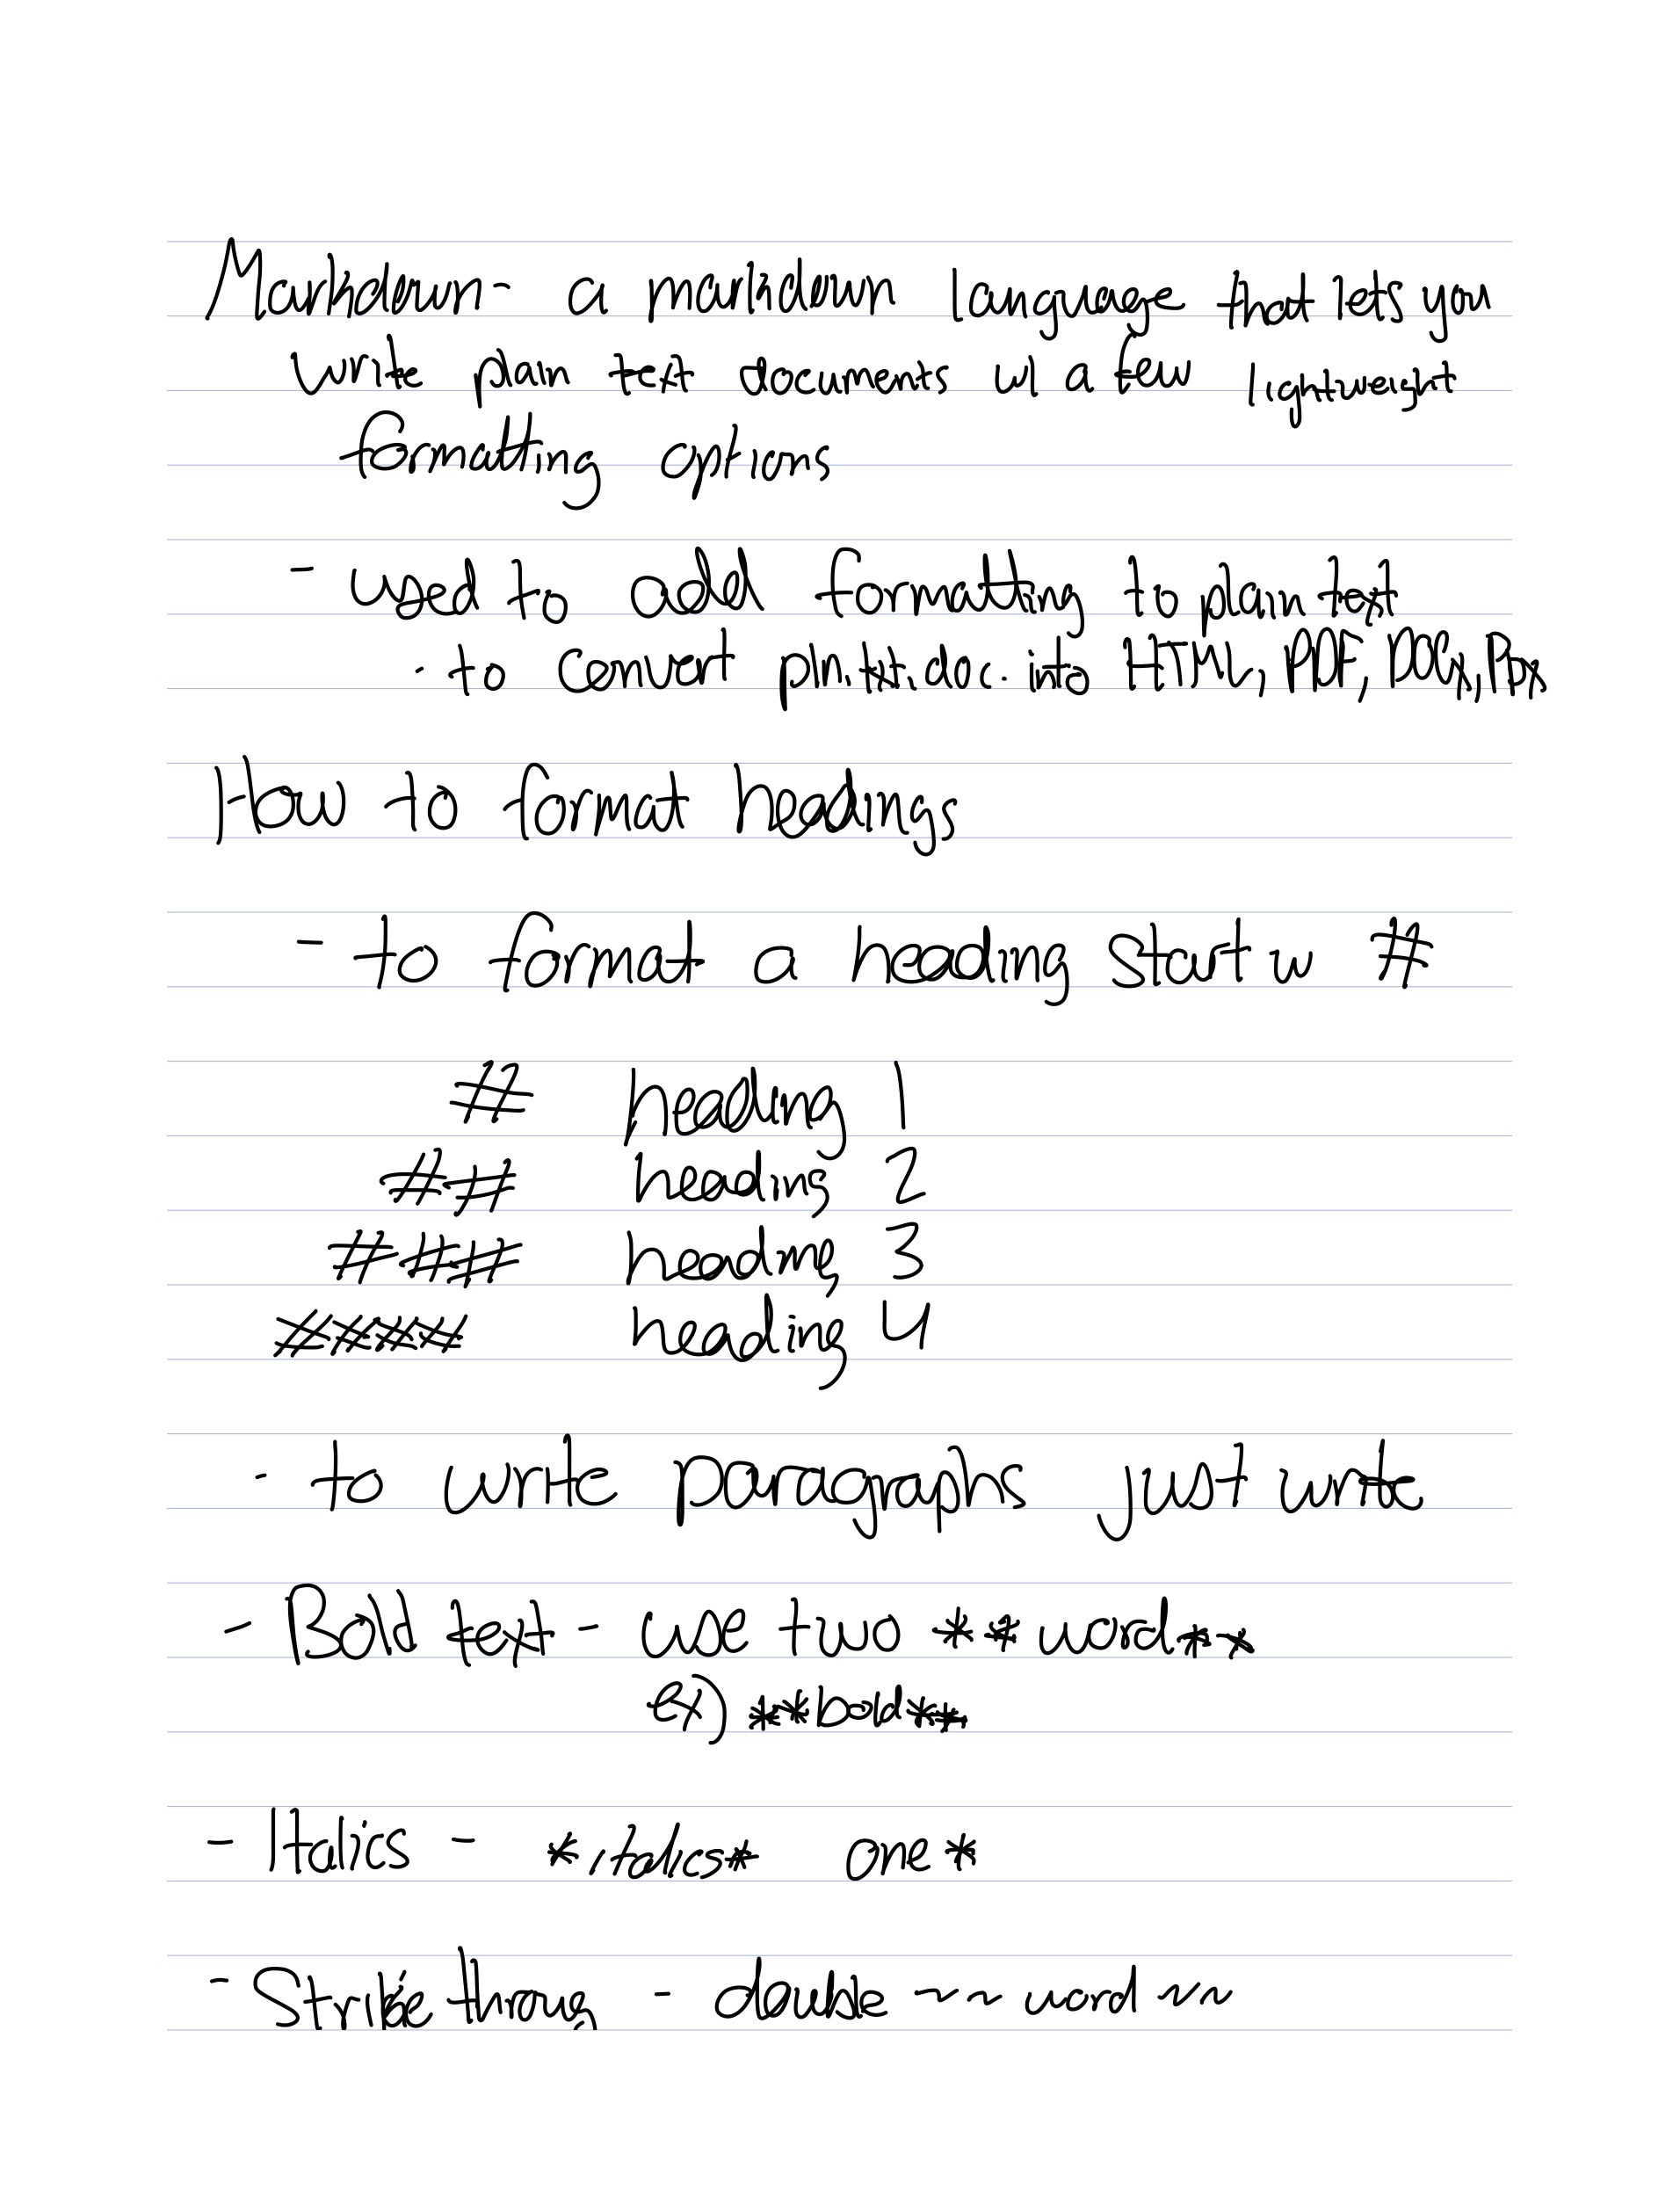 Markdown - a markdown language that lets you
write plain text documents w/ a few lightweight
formatting options
- used to add formatting to plain text
- to convert pln.txt.doc. into HTML, PDF, DOCx, PPtx
How to format headings
- to format a heading start w #
# heading 1
## heading 2
### heading 3
#### heading 4
- to write paragraphs just write
- Bold text - use two ** word**
ex) **bold**
- Italics - *italics* one *
- Strikethroug - double ~~ word ~~